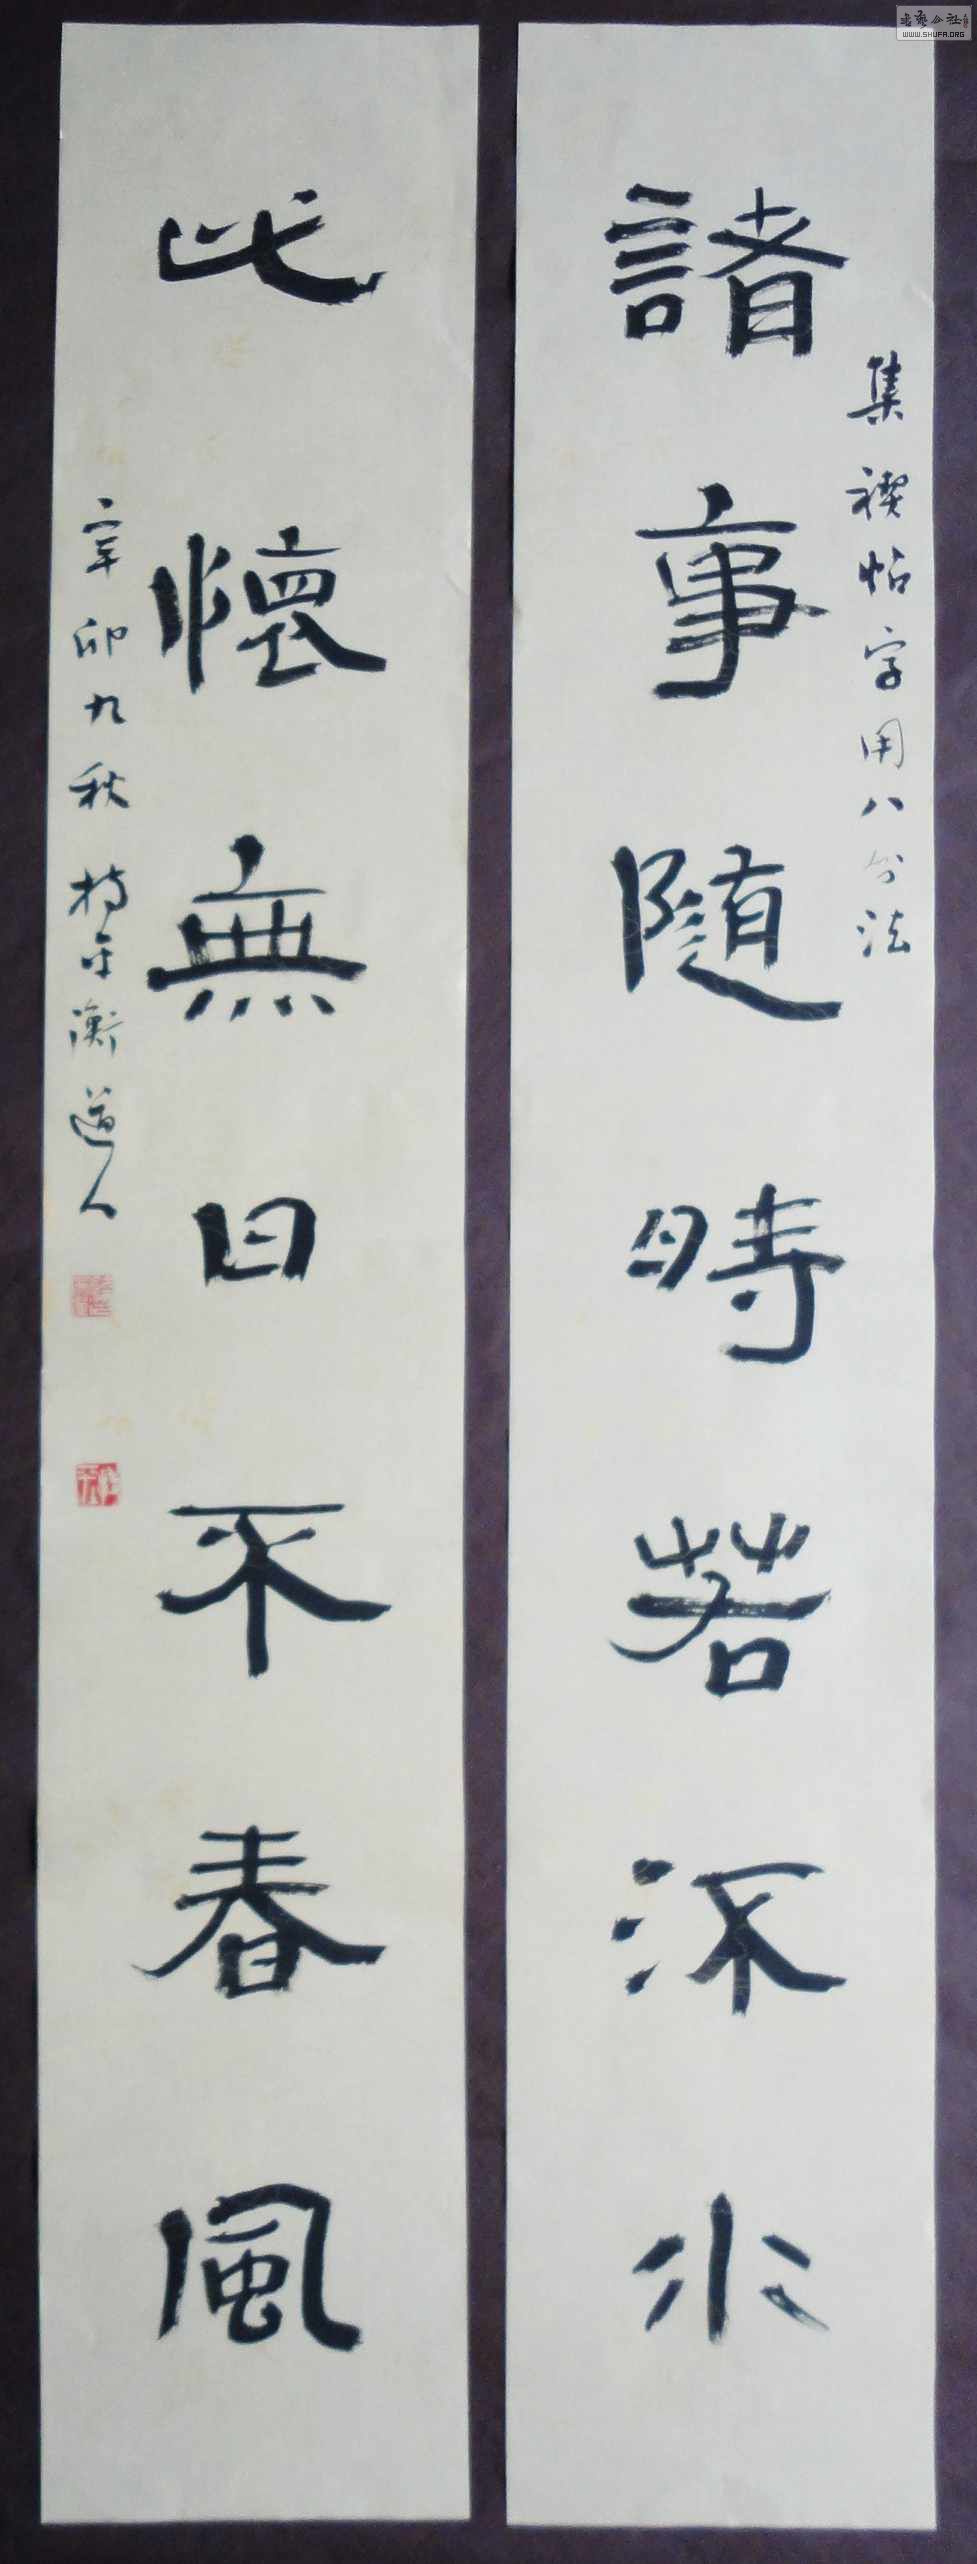 書藝公社
WWW.SHUFA.ORG
集禊帖字用八分法
諸事隨時若流水
此懷無日不春風
辛卯九秋持平衡道人